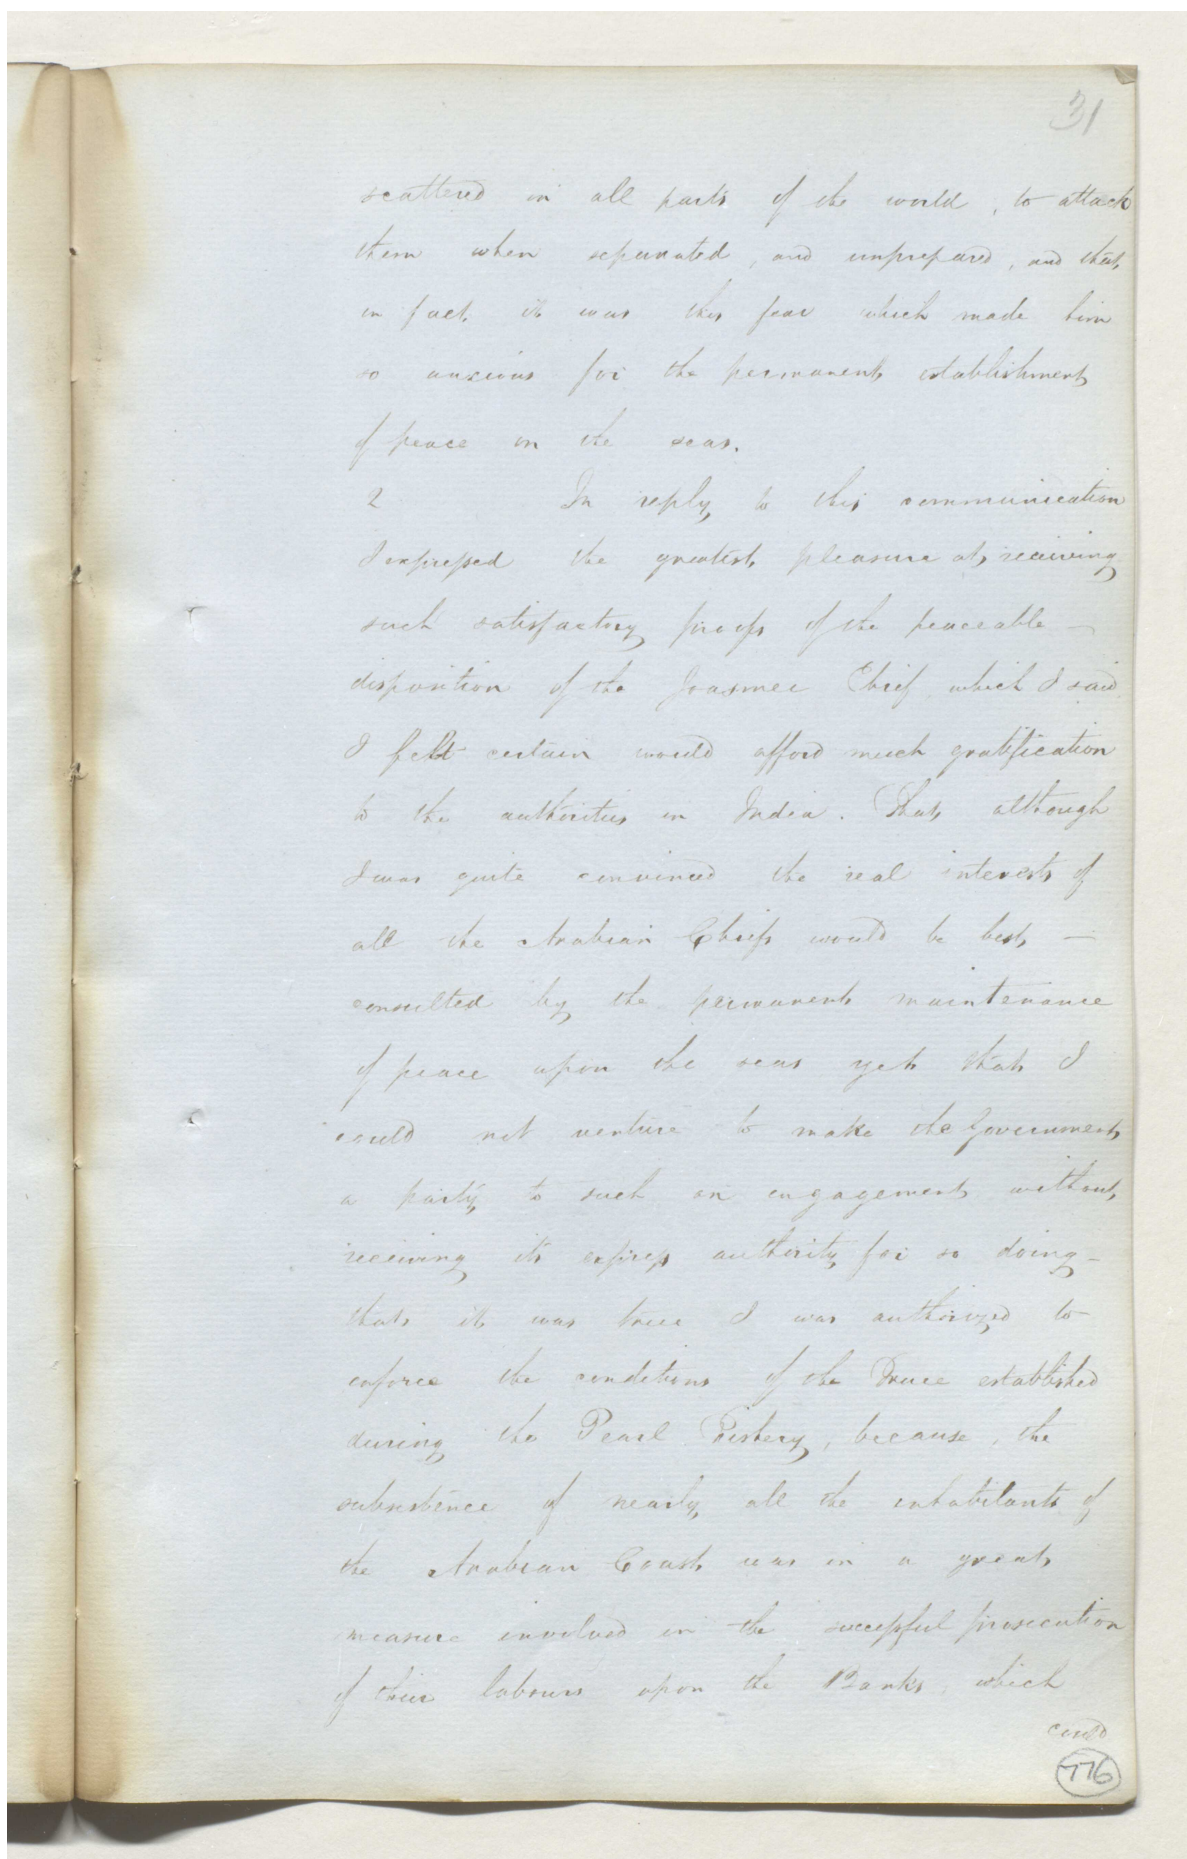 31
scattered in all parts of the world, to attack
them when seperated, and unprepared, and that
in fact it was this fear which made him
so anxious for the permanent establishment
of peace on the seas.
2 In reply to this communication
I expressed the greatest pleasure at receiving
such satisfactory proofs of the peaceable —
disposition of the Joasmee Chief which I said
I felt certain would afford much gratification
to the authorities in India. That although
I was quite convinced the real interests of
all the Arabian Chiefs would be best —
consulted by the permanent maintenance
of peace upon the seas yet that I
could not venture to make the Government
a party to such an engagement without
receiving its express authority for so doing —
that it was true I was authorized to
enforce the conditions of the Truce established
during the Pearl Fishery, because, the
subsistence of nearly all the inhabitants of
the Arabian Coast was in a great
measure involved in the successful prosecution
of their labours upon the Banks, which
could
776